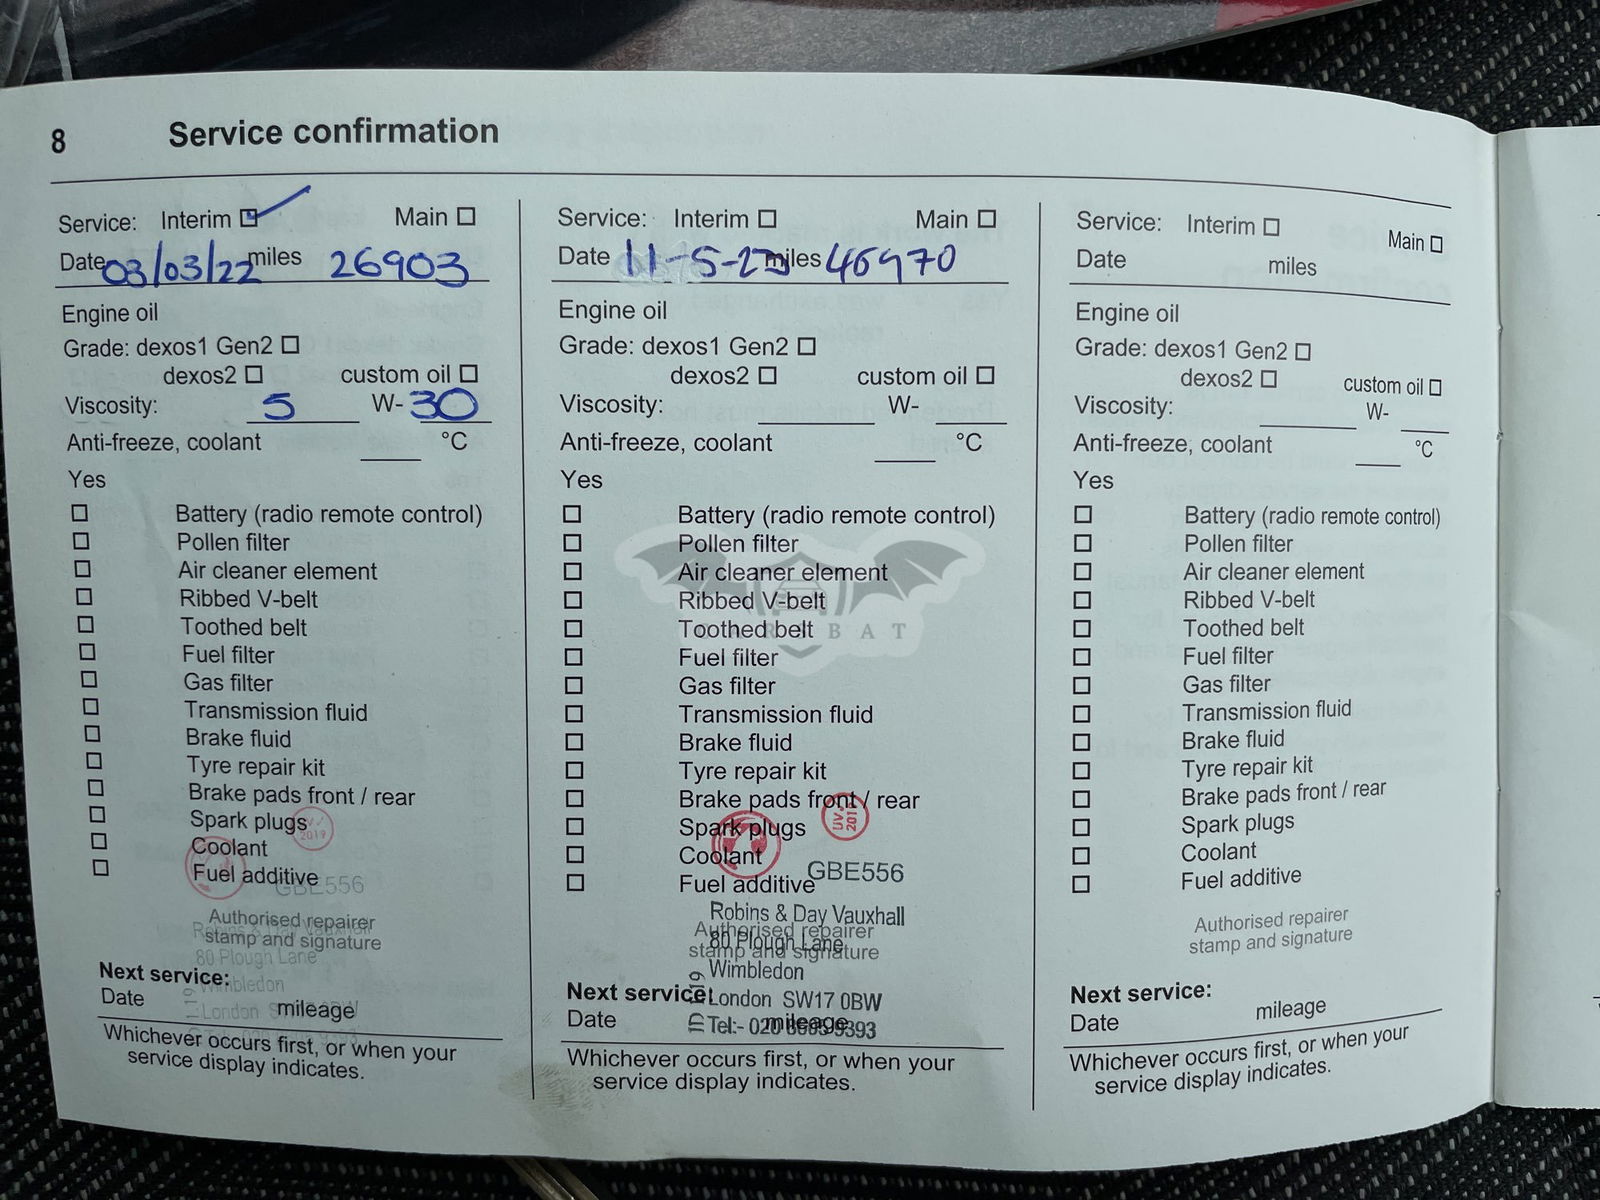 8 Service confirmation
Service: Interim Main
Date 03/03/22 miles 26903
Engine oil
Grade: dexos1 Gen2
dexos2 custom oil
Viscosity: 5 W-30
Anti-freeze, coolant °C
Yes
Battery (radio remote control)
Pollen filter
Air cleaner element
Ribbed V-belt
Toothed belt
Fuel filter
Gas filter
Transmission fluid
Brake fluid
Tyre repair kit
Brake pads front / rear
Spark plugs
2019
Coolant
Fuel additive
GBE556
Authorised repairer
stamp and signature
80 Plough Lane
Wimbledon
London
Next service:
Date mileage
Whichever occurs first, or when your
service display indicates.
Service: Interim Main
Date 11-5-23 miles 46970
Engine oil
Grade: dexos1 Gen2
dexos2 custom oil
Viscosity: W-
Anti-freeze, coolant °C
Yes
Battery (radio remote control)
Pollen filter
Air cleaner element
Ribbed V-belt
CAROBAT
Toothed belt
Fuel filter
Gas filter
Transmission fluid
Brake fluid
Tyre repair kit
Brake pads front / rear
UV
2019
Spark plugs
Coolant
Fuel additive
GBE556
Robins & Day Vauxhall
Authorised repairer
80 Plough Lane
stamp and signature
Wimbledon
London SW17 0BW
Next service:
Date mileage
Tel:- 020 9393
Whichever occurs first, or when your
service display indicates.
Service: Interim Main
Date miles
Engine oil
Grade: dexos1 Gen2
dexos2 custom oil
Viscosity: W-
Anti-freeze, coolant °C
Yes
Battery (radio remote control)
Pollen filter
Air cleaner element
Ribbed V-belt
Toothed belt
Fuel filter
Gas filter
Transmission fluid
Brake fluid
Tyre repair kit
Brake pads front / rear
Spark plugs
Coolant
Fuel additive
Authorised repairer
stamp and signature
Next service:
Date mileage
Whichever occurs first, or when your
service display indicates.